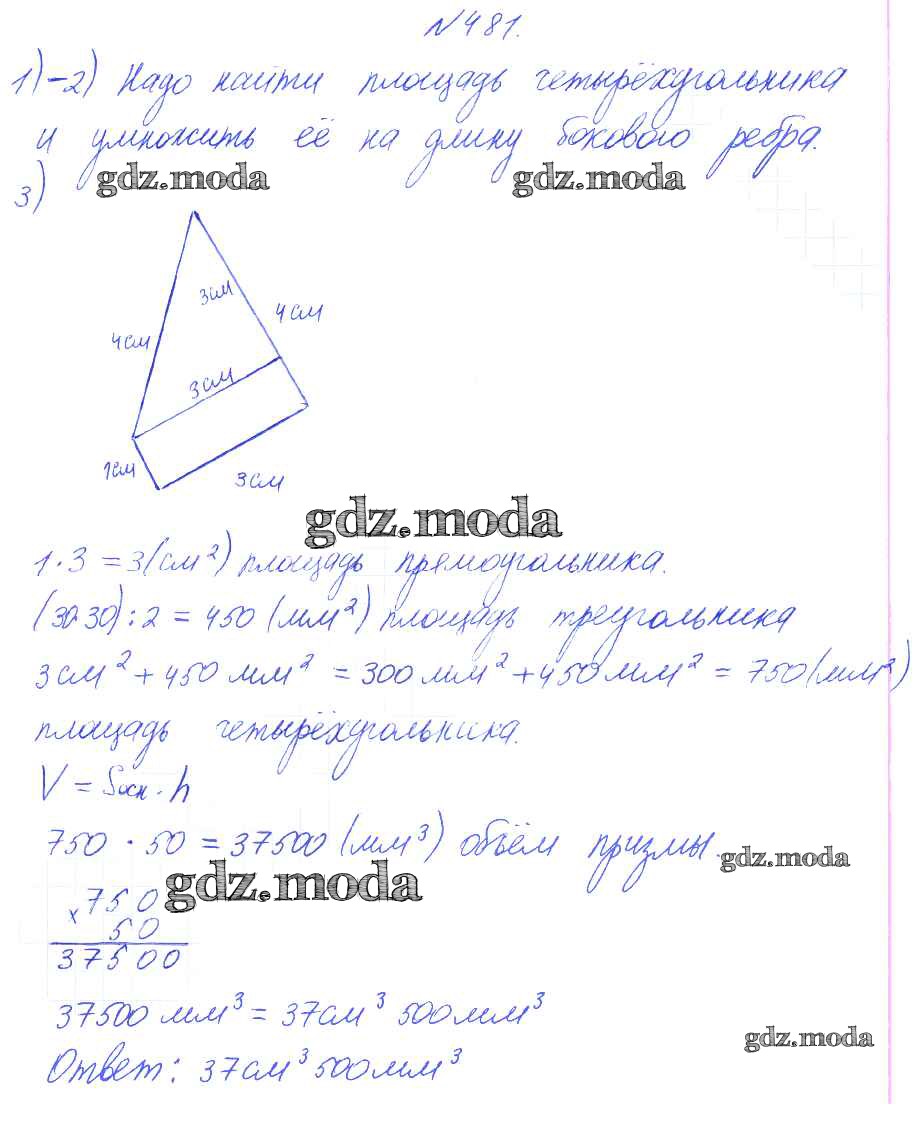 №481.
1)-2) Надо найти площадь четырёхугольника
и умножить её на длину бокового ребра.
gdz.moda gdz.moda
3)
3см
4см
4см
3см
1см
3см
gdz.moda
1·3 = 3(см²) площадь прямоугольника.
(30·30):2 = 450 (мм²) площадь треугольника
3см² + 450 мм² = 300 мм² + 450 мм² = 750 (мм²)
площадь четырёхугольника.
V = Sосн · h
750 · 50 = 37500 (мм³) объём призмы.
gdz.moda
gdz.moda
x 750
50
37500
37500 мм³ = 37см³ 500мм³
gdz.moda
Ответ: 37см³ 500мм³